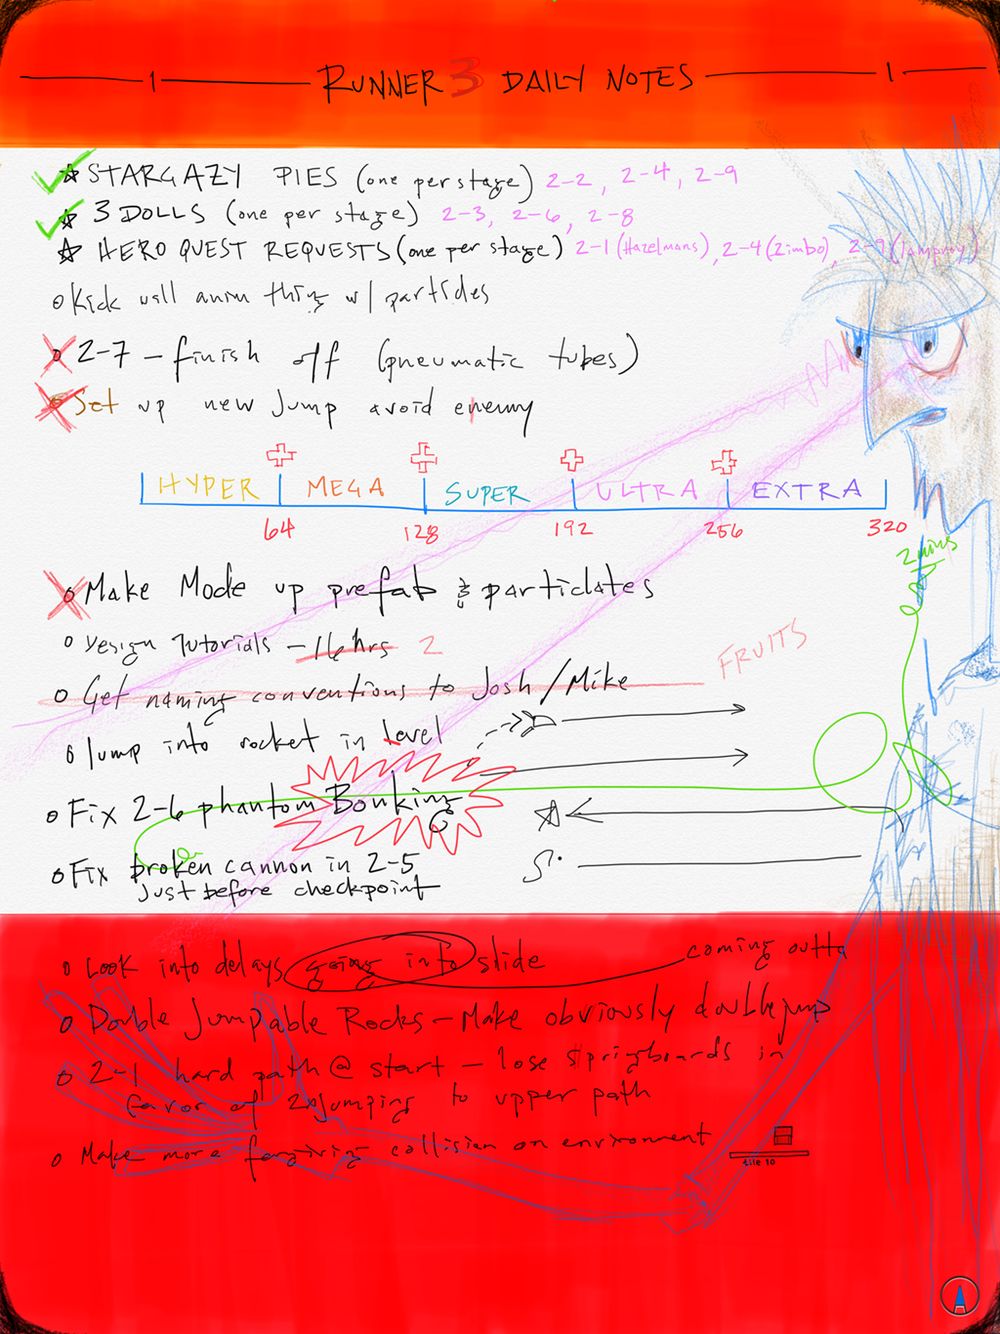 1 RUNNER 3 DAILY NOTES 1
STARGAZY PIES (one per stage) 2-2, 2-4, 2-9
3 DOLLS (one per stage) 2-3, 2-6, 2-8
HERO QUEST REQUESTS (one per stage) 2-1 (Hazelmans), 2-4 (Zimbo), 2-9 (lamprey)
Kick will anim thing w/ particles
2-7 - finish off (pneumatic tubes)
Set up new Jump avoid enemy
HYPER MEGA SUPER ULTRA EXTRA
64 128 192 256 320
2 mins
Make Mode up prefab & particlates
Design Tutorials - 16 hrs 2
FRUITS
Get naming conventions to Josh/Mike
Jump into rocket in Level
Fix 2-6 phantom Bonking
Fix broken cannon in 2-5
Just before checkpoint
Look into delays going into slide coming outta
Double Jumpable Rocks - Make obviously doublejump
2-1 hard path @ start - lose springboards in
favor of 2xjumping to upper path
Make more forgiving collision on environment
tile 10